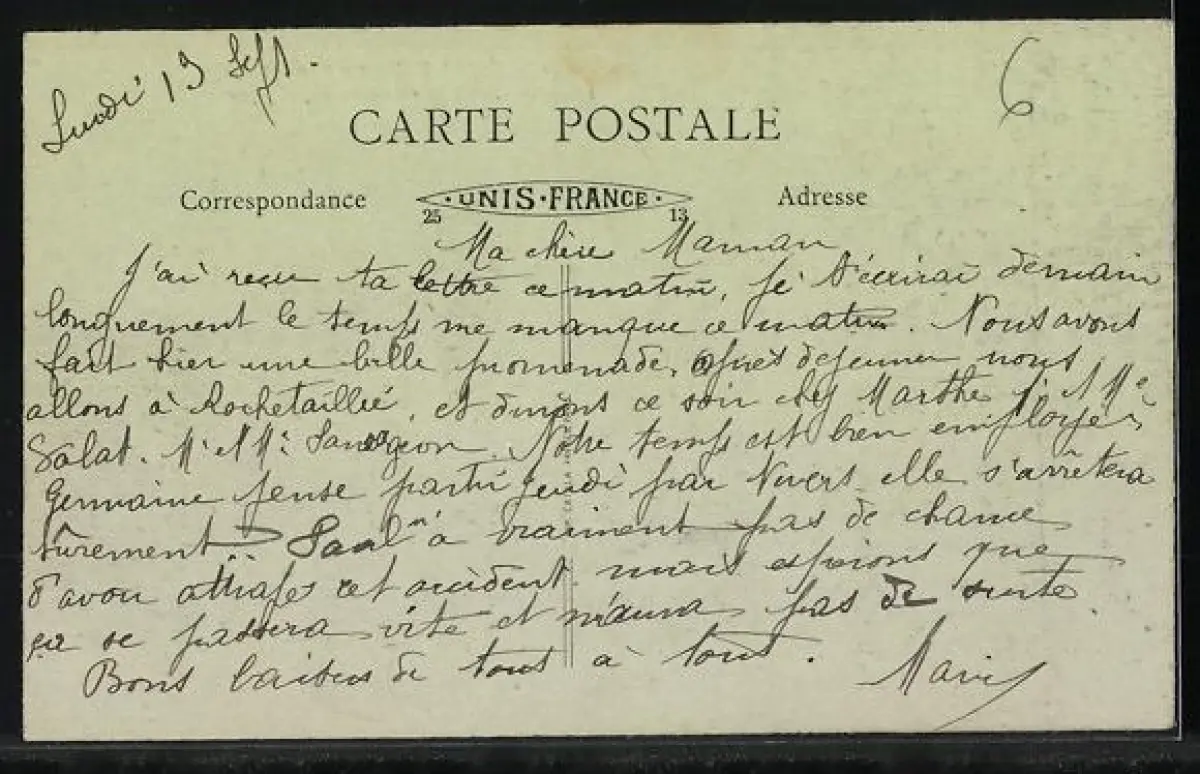 Lundi 13 Sept.
6
CARTE POSTALE
Correspondance
25 · UNIS · FRANCE · 13
Adresse
Ma chère Maman
J'ai reçu ta lettre ce matin, je t'écrirai demain
longuement le temps me manque ce matin. Nous avons
fait hier une belle promenade, après dejeuner nous
allons à Rochetaillée, et dinons ce soir chez Marthe, Mr et Me
Salat. Mr et Me. Notre temps est bien employé
Germaine pense partir jeudi par Nevers elle s'arrêtera
sûrement. Paul n'a vraiment pas de chance
d'avoir attrapé cet accident mais espérons que
ça se passera vite et n'aura pas de suite.
Bons baisers de tout à tout.
Marie